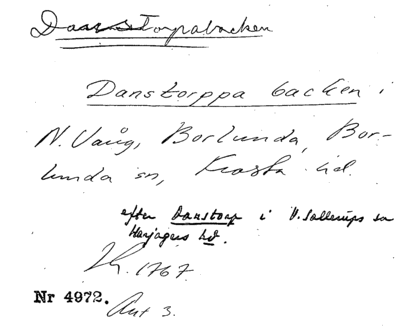 Danstorpabacken
Danstorppa backen i
N. Vång, Borlunda, Bor-
lunda sn, Frosta hd.
efter Danstorp i V. Sallerups sn
Harjagers hd.
1767.
Nr 4972. Ant 3.